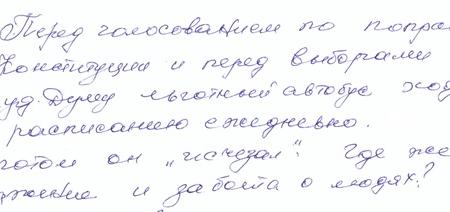 Перед голосованием по попра
Конституции и перед выборами
уд. Думу льготный автобус ход
расписанию ежедневно.
потом он „исчезал“. Где же
и забота о людях?